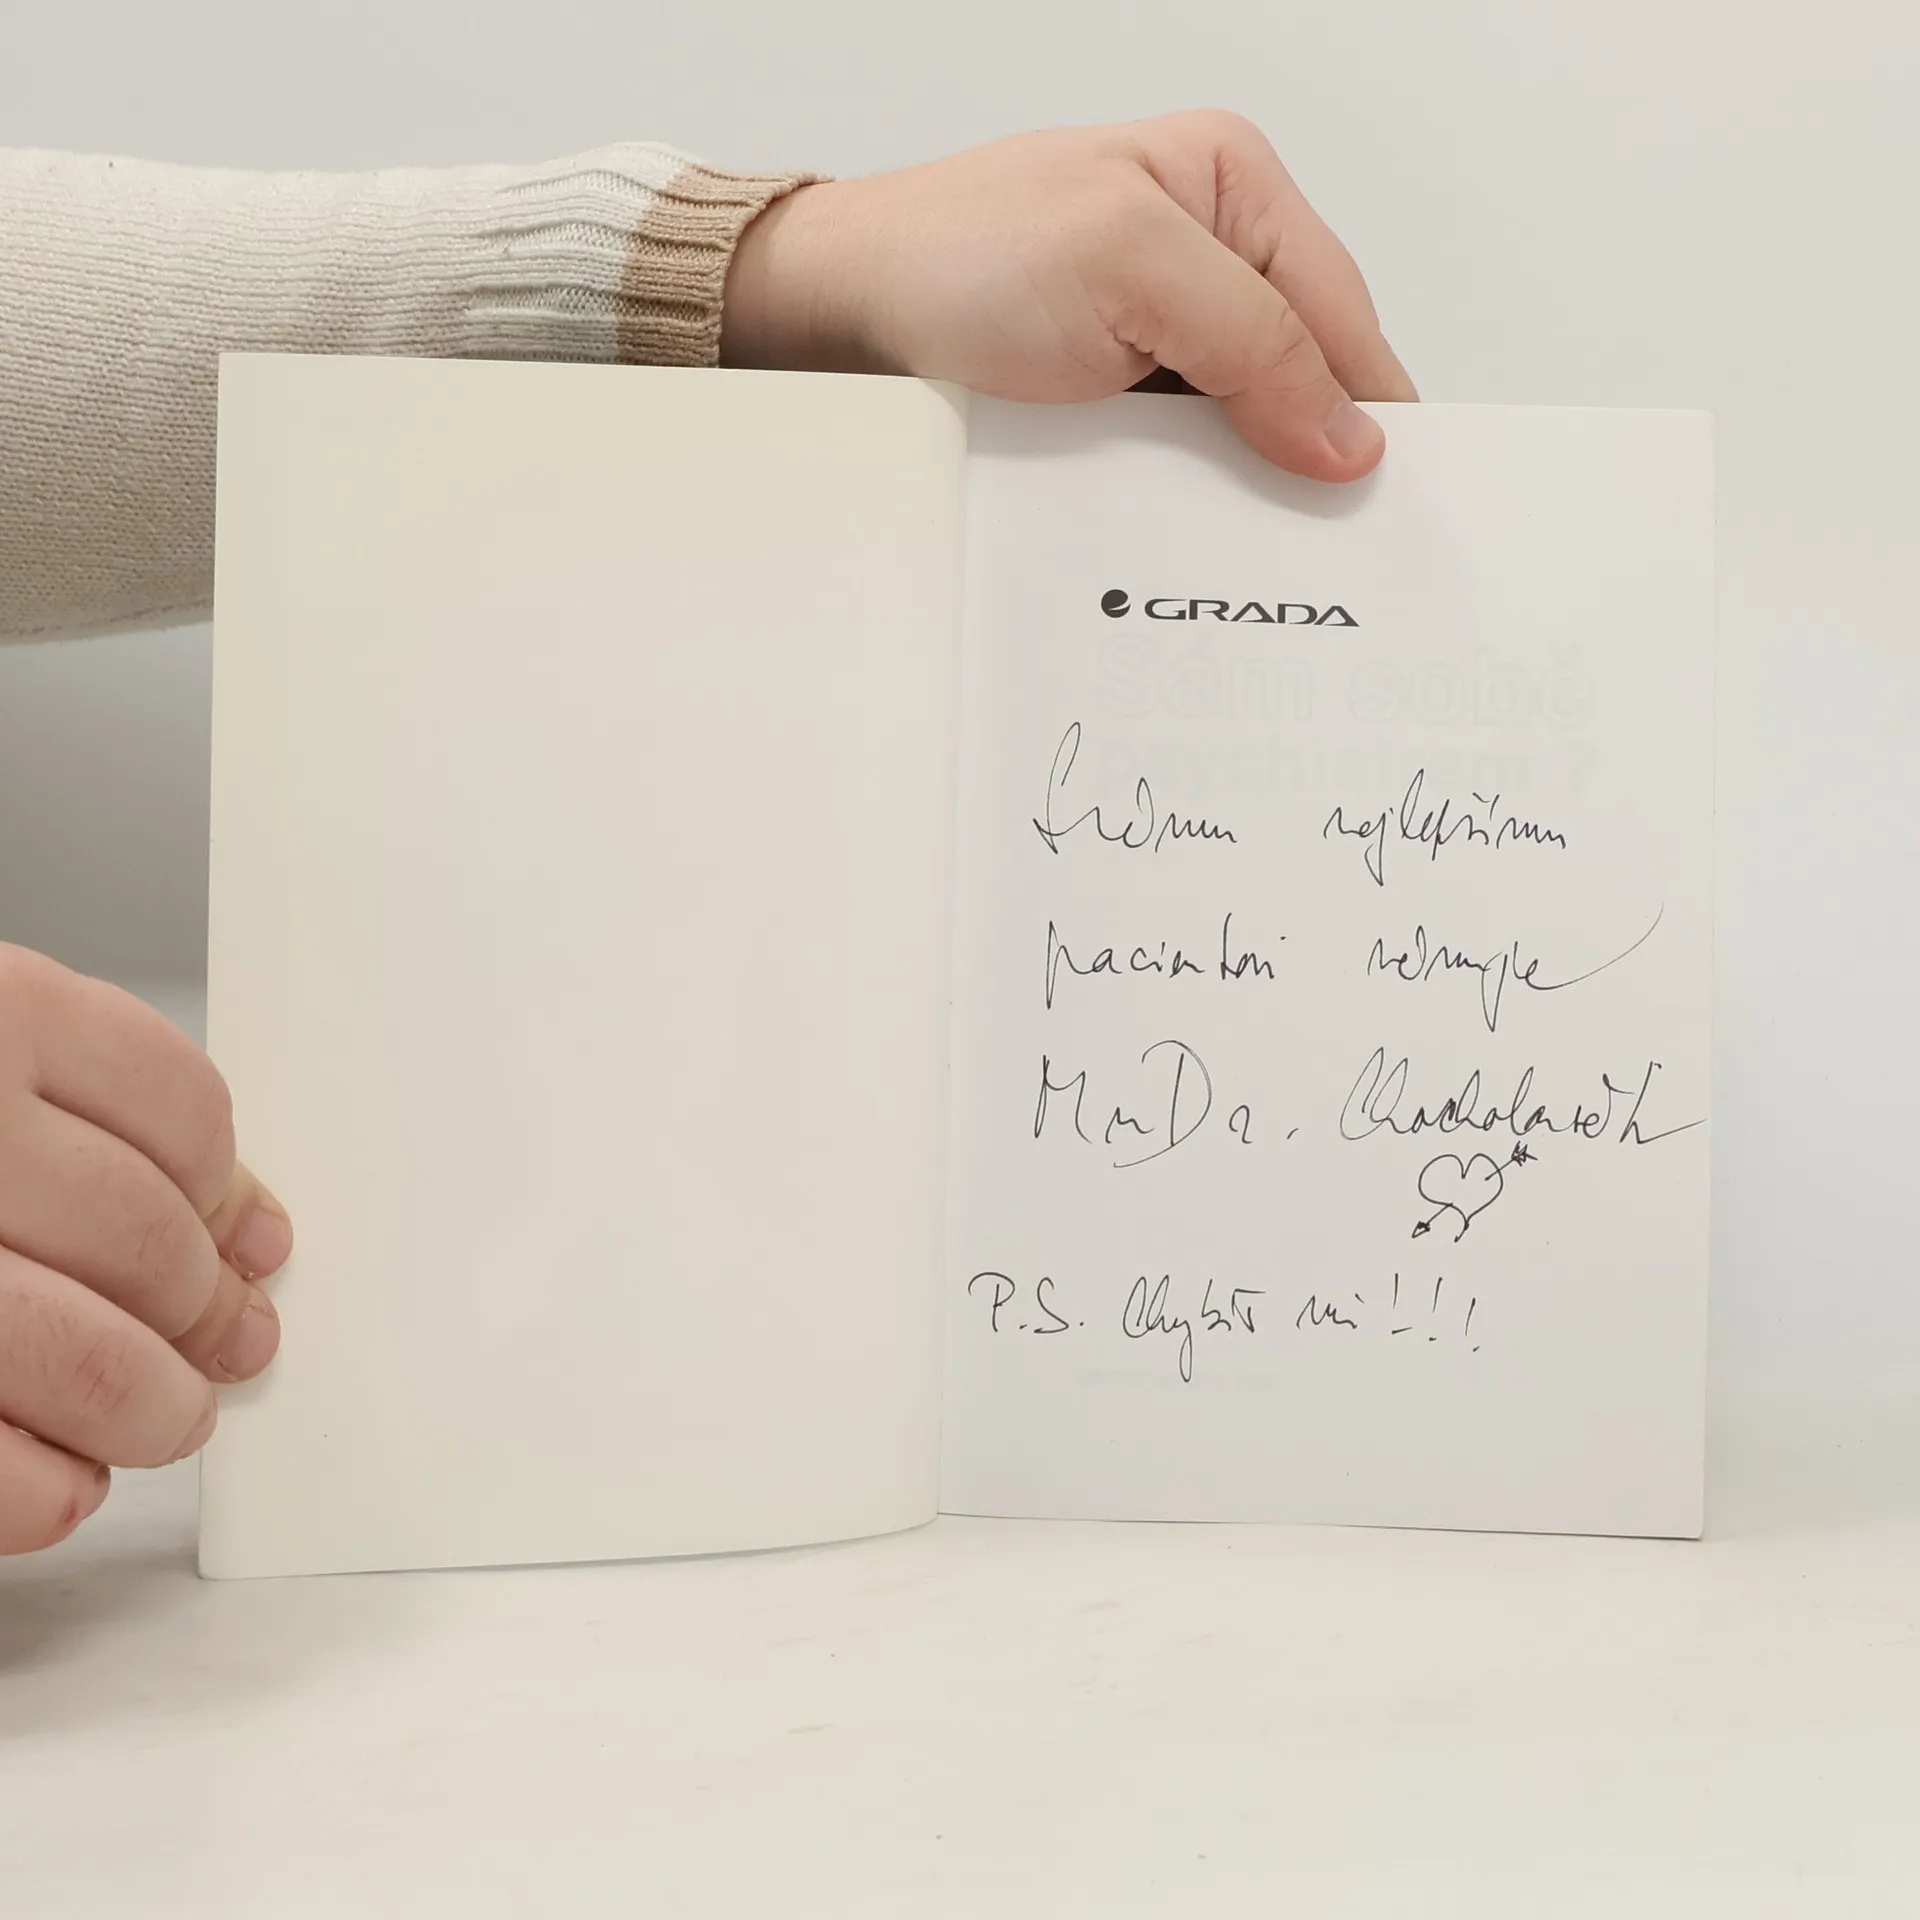 GRADA
Sám sobě
psychiatrem?
Svému nejlepšímu
pacientovi věnuje
MuDr. Chocholoušek
P.S. Chybíš mi!!!